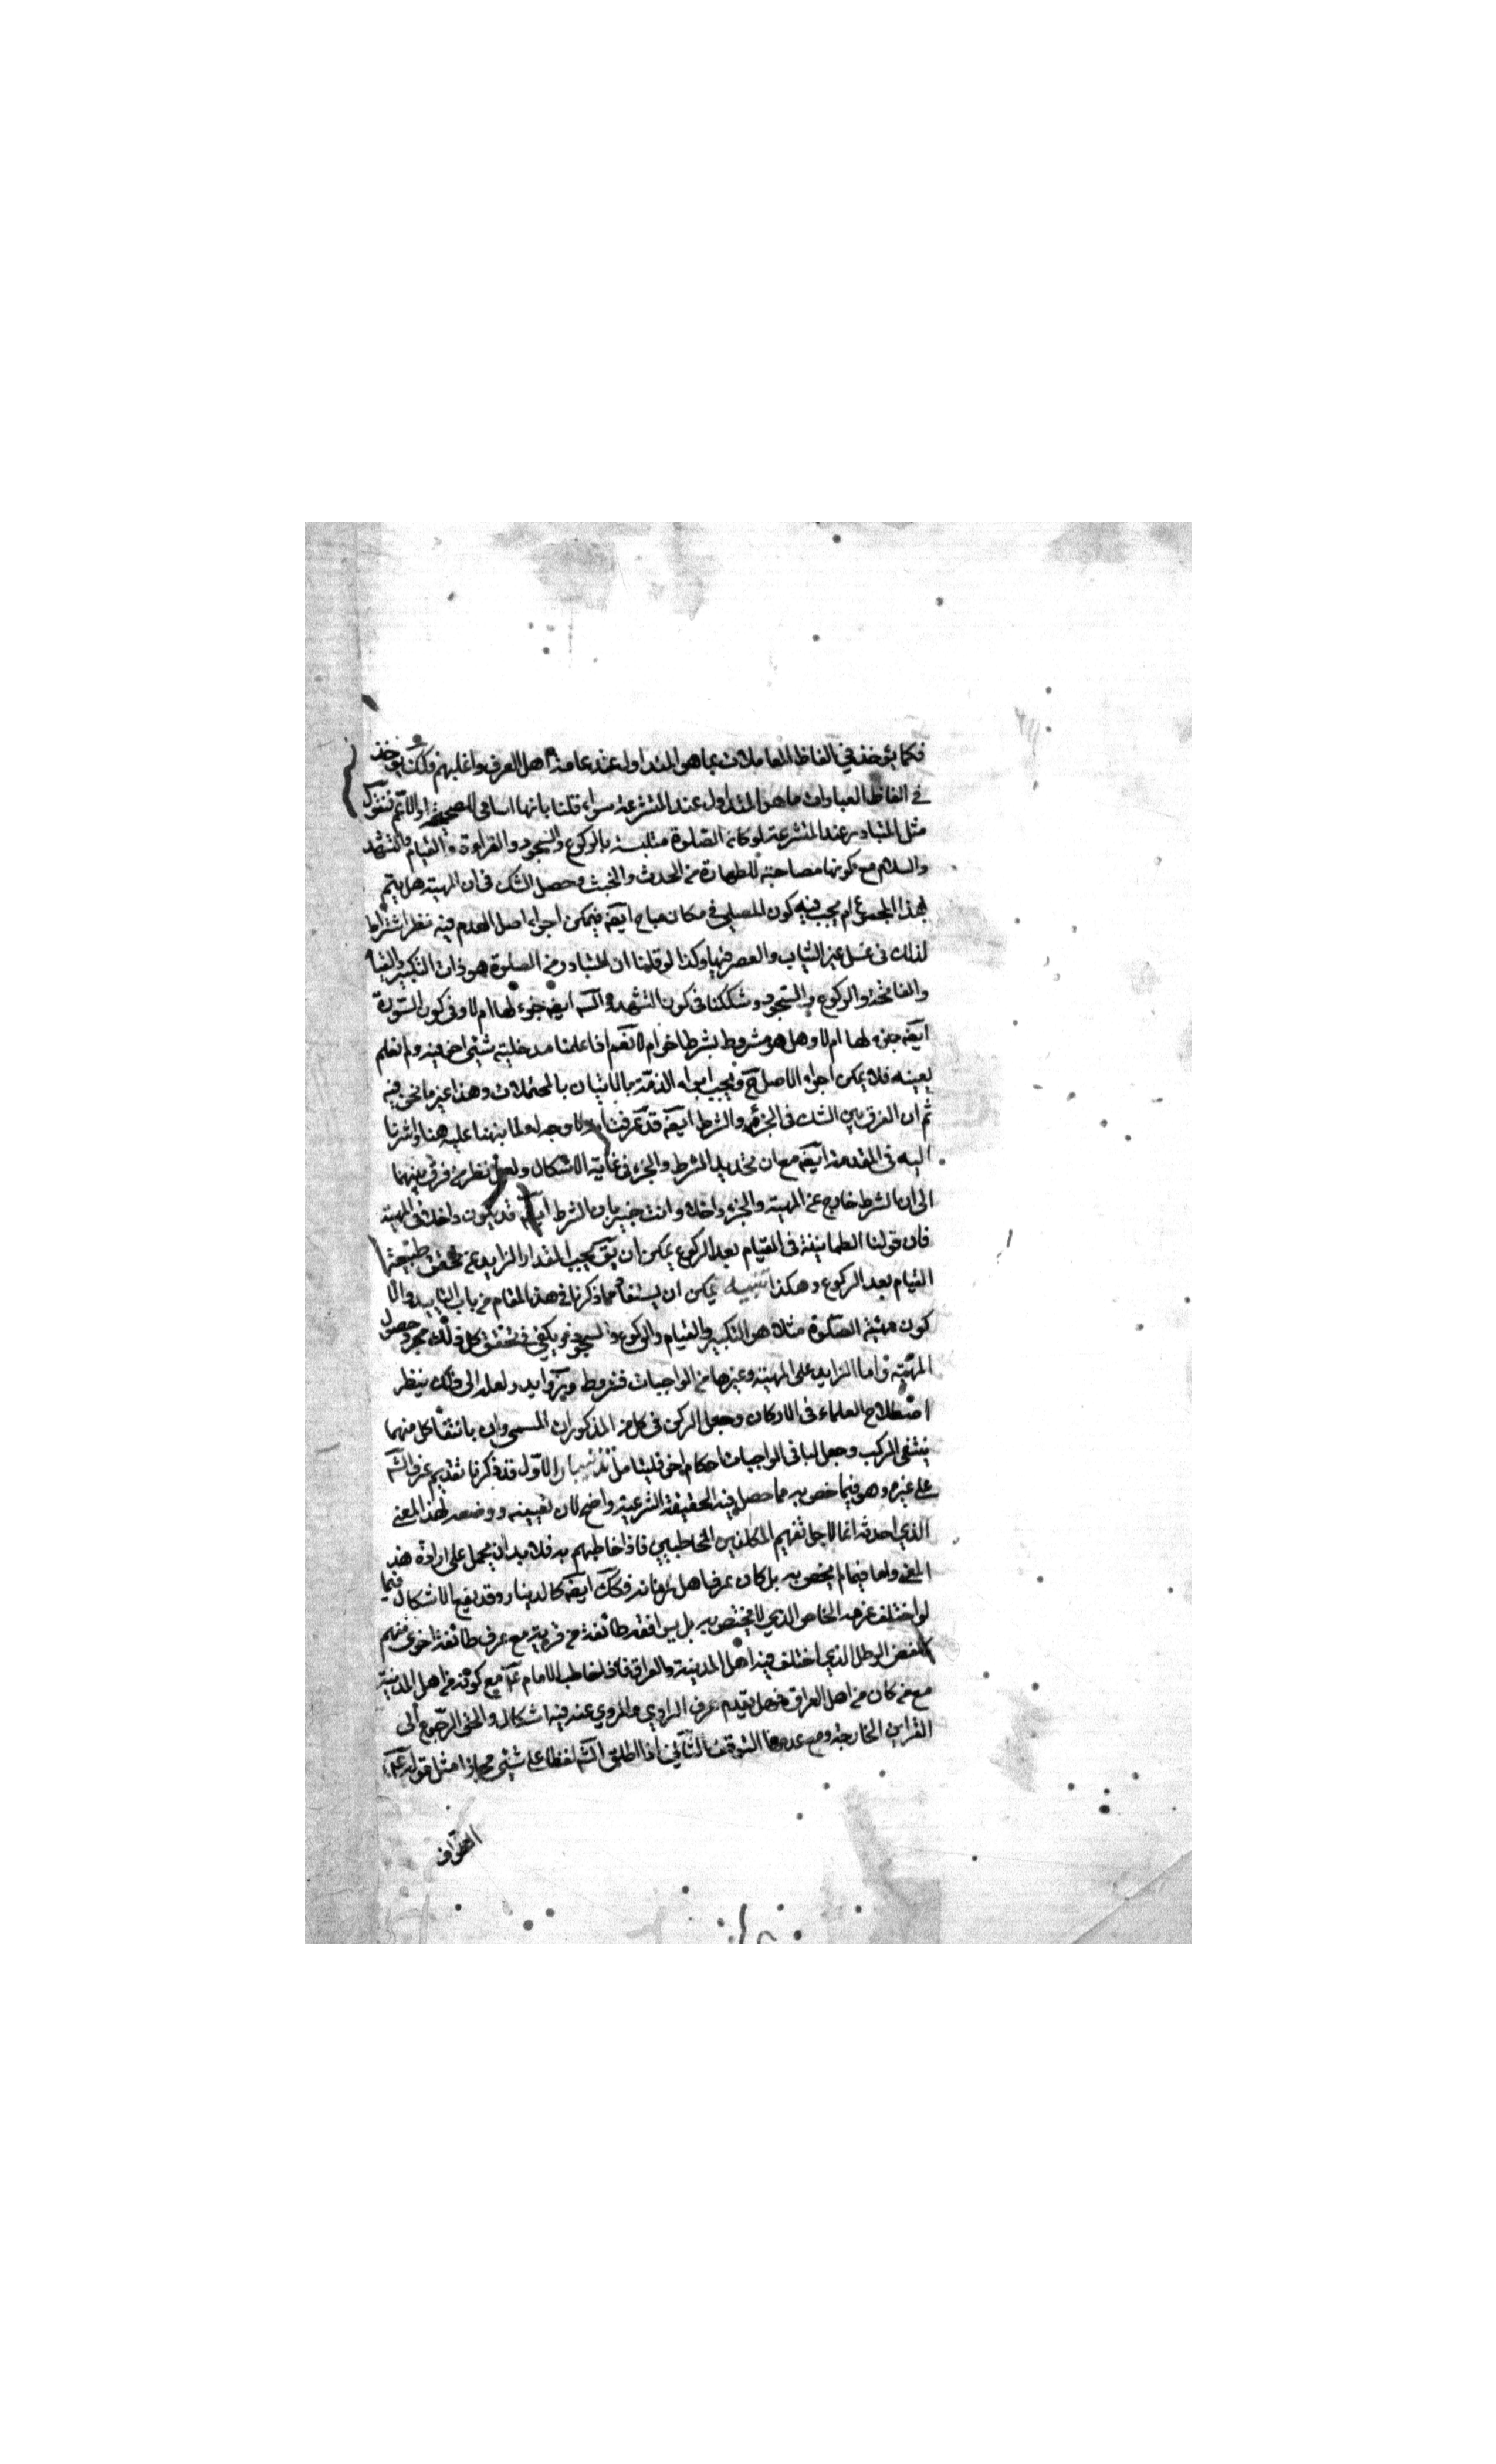 فكما يؤخذ في الفاظ المعاملات بما هو المتداول عند عامة اهل العرف واغلبهم فكك يؤخذ
في الفاظ العبادات ما هو المتداول عند المتشرعة سواء قلنا بانها اسامي للصحيحة او الاعم فنقول
مثل المتبادر عند المتشرعة لو كان الصلوة متلبسة بالركوع والسجود والقراءة والقيام والتشهد
والسلام مع كونها مصاحبة للطهارة من الحدث والخبث وحصل الشك في ان المهية هل يتم
بهذا المجموع ام يجب فيه كون المصلي في مكان مباح ايضه فيمكن اجراء اصل العدم فيه نظر اشتراط
لذلك في غسل غير الثياب والعصر فيها وكذا لو قلنا ان المتبادر من الصلوة هو ذات التكبير والقيام
والفاتحة والركوع والسجود وشككنا في كون التشهد والسلم ايضه جزء لها ام لا وفي كون السورة
ايضه جزء لها ام لا وهل هو مشروط بشرط اخر ام لا نعم اذا علمنا مدخلية شيء اخر فيه ولم نعلم
بعينه فلا يمكن اجراء الاصل ح ويجب ابراء الذمة بالاتيان بالمحتملات وهذا غير ما نحن فيه
ثم ان الفرق بين الشك في الجزء والشرط ايضه قد عرفت ولا وجه له لما نبهنا عليه هنا واشرنا
اليه في المقدمة ايضه مع ان تحديد الشرط والجزء في غاية الاشكال ولعل نظر من فرق بينهما
الى ان الشرط خارج عن المهية والجزء داخل وانت خبير بان الشرط ايضه قد يكون داخلا في المهية
فان قولنا الطمانينة في القيام بعد الركوع يمكن ان يق يجب المقدار الزايد عن تحقق طبيعة
القيام بعد الركوع وهكذا تنبيه يمكن ان يستفاد مما ذكرنا في هذا المقام من باب التاييد والا
كون مهية الصلوة مثلا هو التكبير والقيام والركوع والسجود ويكفي في تحقق كل ذلك مجرد حصول
المهية واما الزايد على المهية وغيرها من الواجبات فشروط وزوايد ولعله الى ذلك ينظر
اصطلاح العلماء في الاركان وجعل الركن في كل من المذكورات المسمى وان بانتفاء كل منهما
ينتفي المركب وجعل لباقي الواجبات احكام اخر فليتامل تذنيبان الاول قد ذكرنا تقديم عرف الشه
على غيره وهو فيما خص به مما حصل فيه الحقيقة الشرعية واضح لان تعيينه ووضعه لهذا المعنى
الذي احدثه انما لاجل تفهيم المكلفين المخاطبين فاذا خاطبهم به فلا بد ان يحمل على ارادة هذا
المعنى واما فيما لم يختص به بل كان عرف اهل زمانه فكك ايضه كالدينار وقد يقع الاشكال فيما
لو اختلف عرفه الخاص الذي لا يختص به بل يوافقه طائفة من قريته مع عرف طائفة اخرى منهم
كلفظ الرطل الذي اختلف فيه اهل المدينة والعراق فاذا خاطب الامام ع مع كونه من اهل المدينة
مع من كان من اهل العراق فهل يقدم عرف الراوي والمروي عنه فيه اشكال والحق الرجوع الى
القراين الخارجة ومع عدمها التوقف الثاني اذا اطلق الشه لفظا على شيء مجازا مثل قوله ع
الطواف